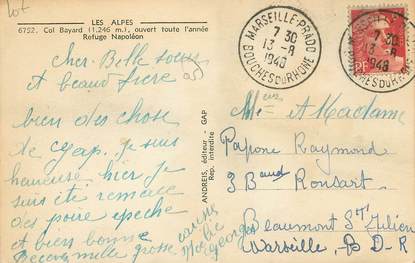 LES ALPES
6752. Col Bayard (1.246 m.), ouvert toute l'année
Refuge Napoléon
Cher Belle soeur
et beaud frere
bien des chose
de gap. je suis
heureuse hier je
suis
des poire epeche
et bien bonne
Recevez mille grosse
Georges
ANDREIS, éditeur - GAP
Rep. interdite
MARSEILLE-PRADO
7 30
13-8
1948
BOUCHES DU RHONE
7 30
13-8
1948
BOUCHES DU RHONE
RF
et Madame
Papone Raymond
3 Baud Ronsart
Beaumont St Julien
Marseille, B-D-R